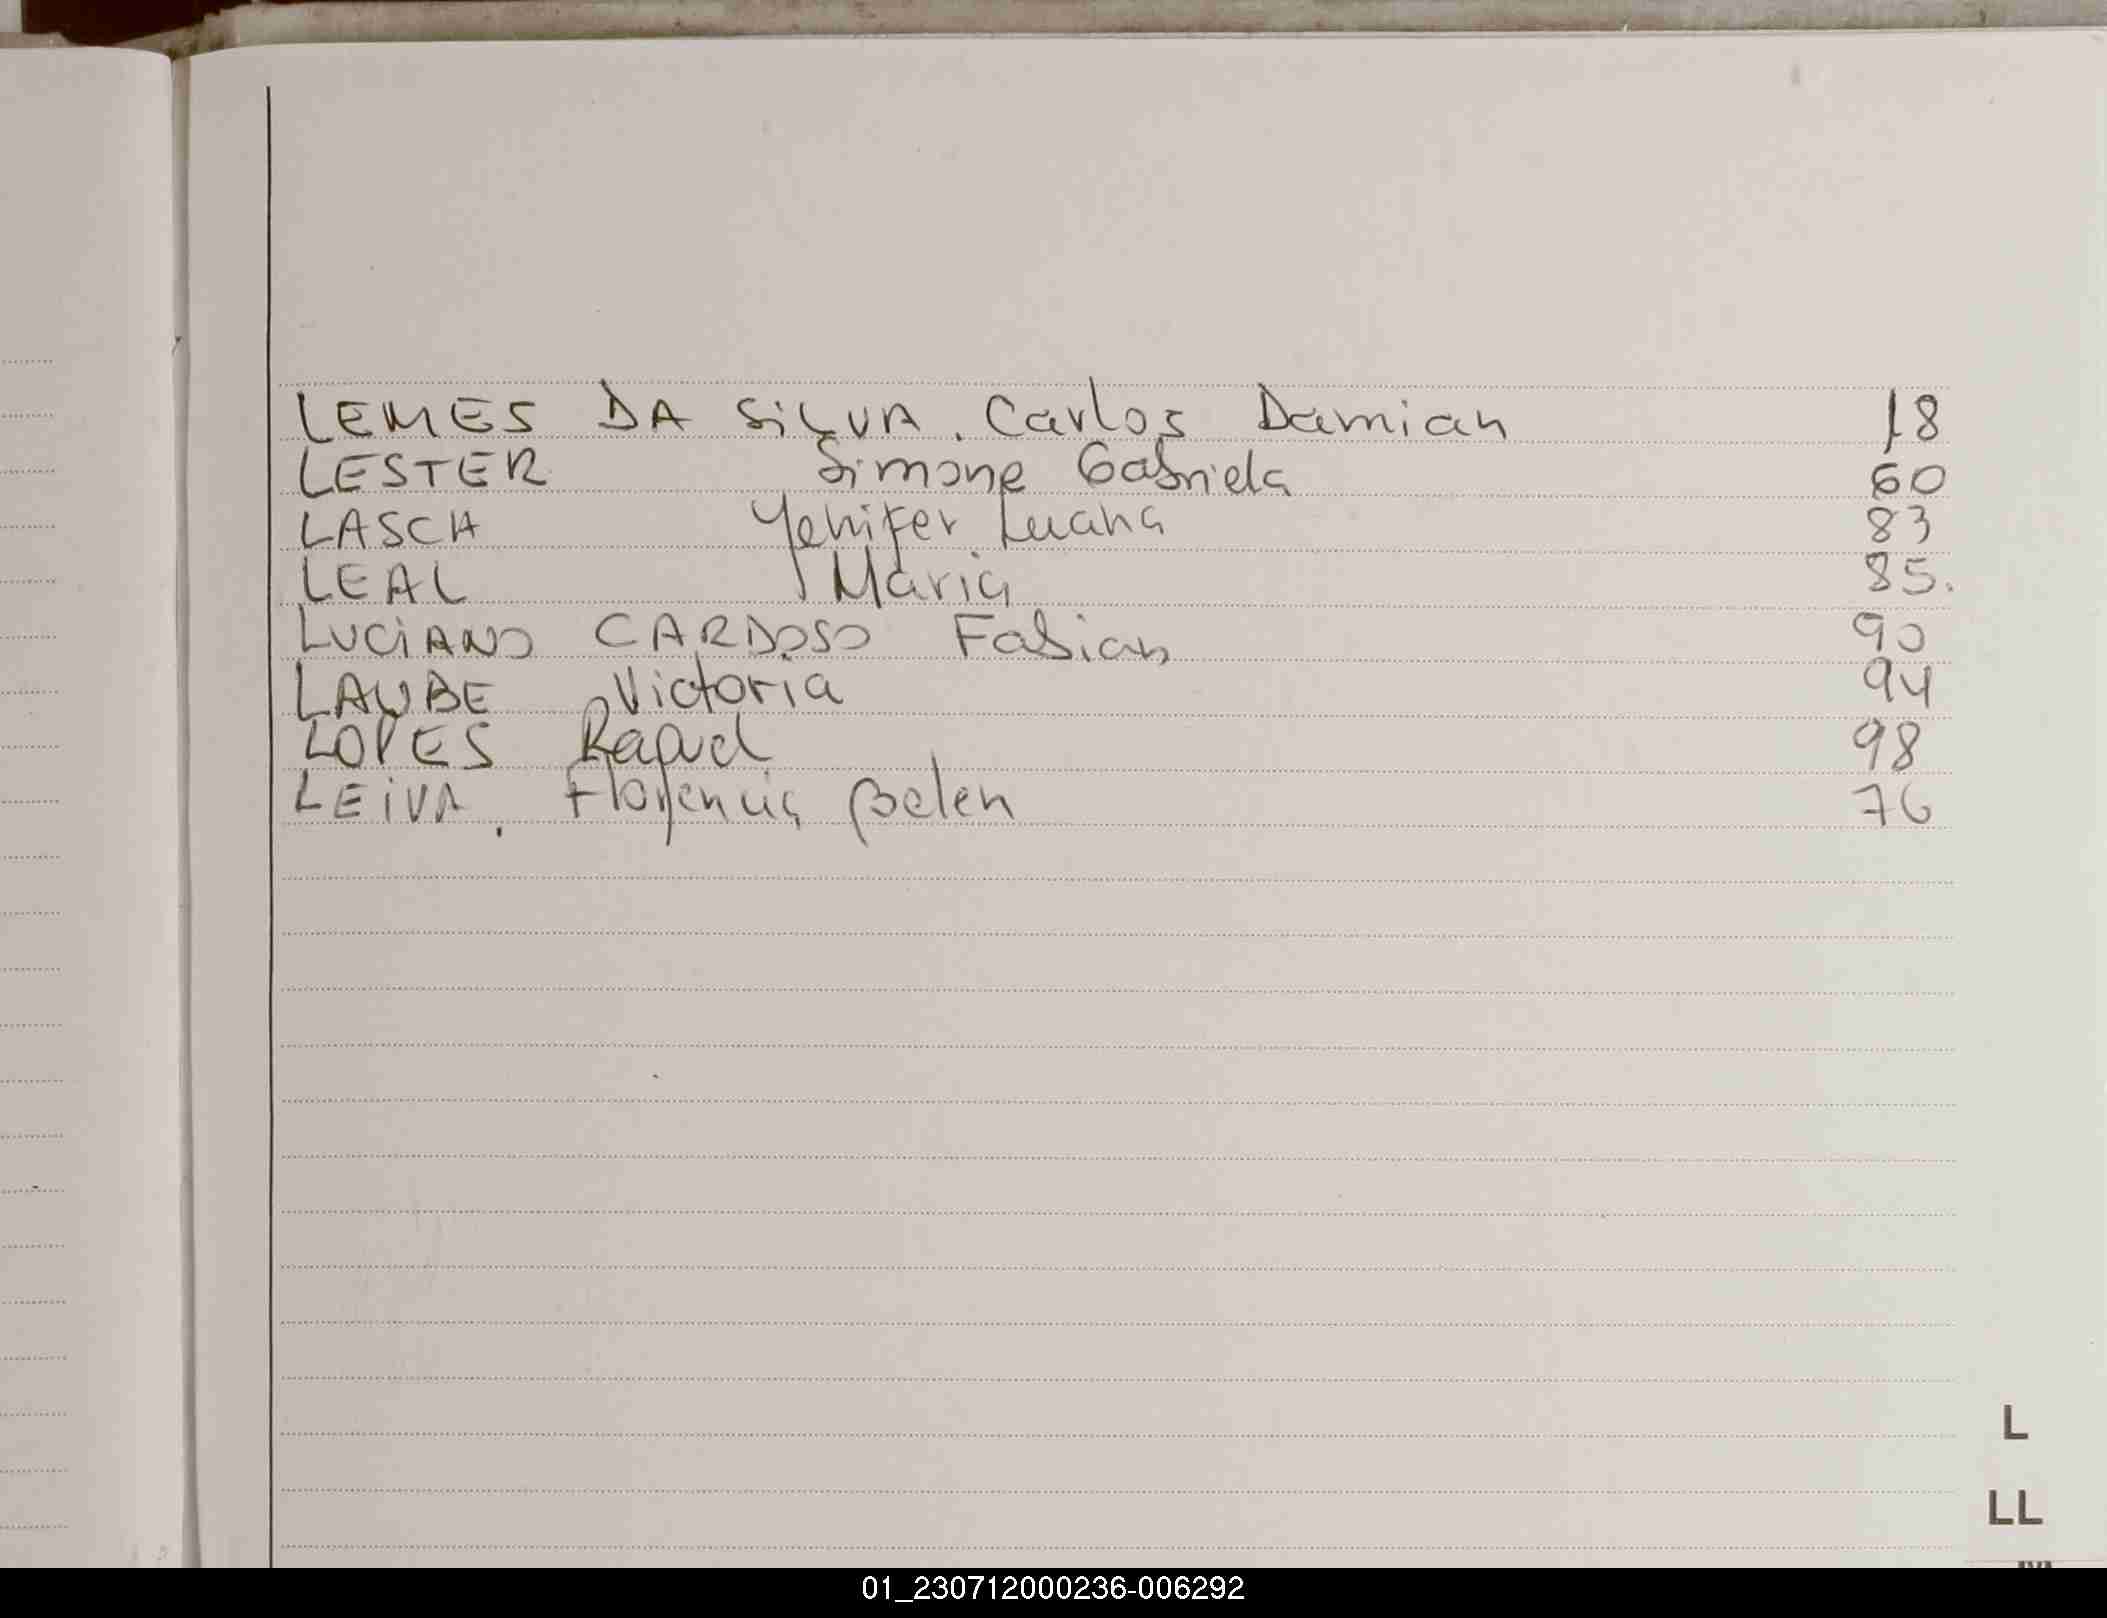 LEMES DA SiLVA. Carlos Damian 18
LESTER Simone Gabriela 60
LASCH Yenifer Luana 83
LEAL Maria 85.
LUCiANO CARDOSO Fabian 90
LAUBE Victoria 94
LOPES Raquel 98
LEiVA. Florencia Belen 76
L
LL
01_230712000236-006292